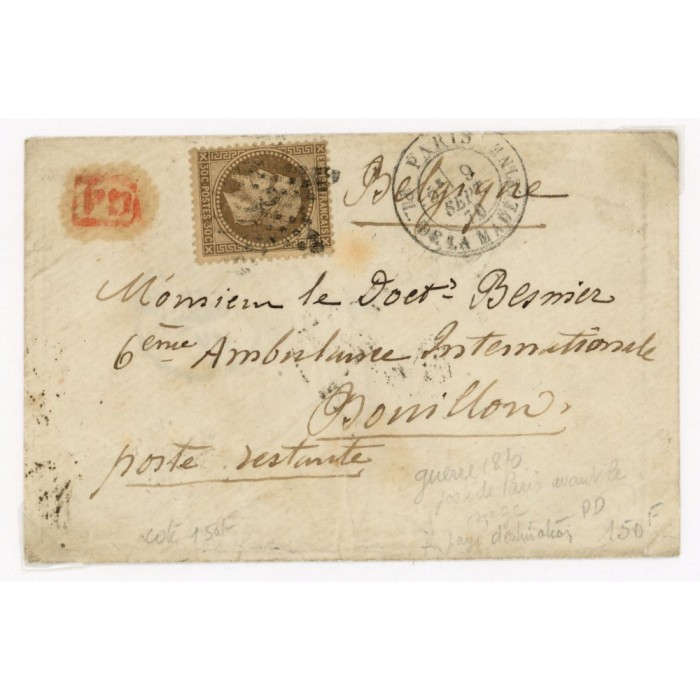 PD
30C POSTES 30C
EMPIRE FRANÇAIS
PARIS
9
SEPT
70
PL. DE LA MADELEINE
Belgique
Monsieur le Doct.r Besnier
6ème Ambulance Internationale
Bouillon.
poste restante
guerre 1870
de Paris avant le
siège
pays destination PD
150F
cote 150F